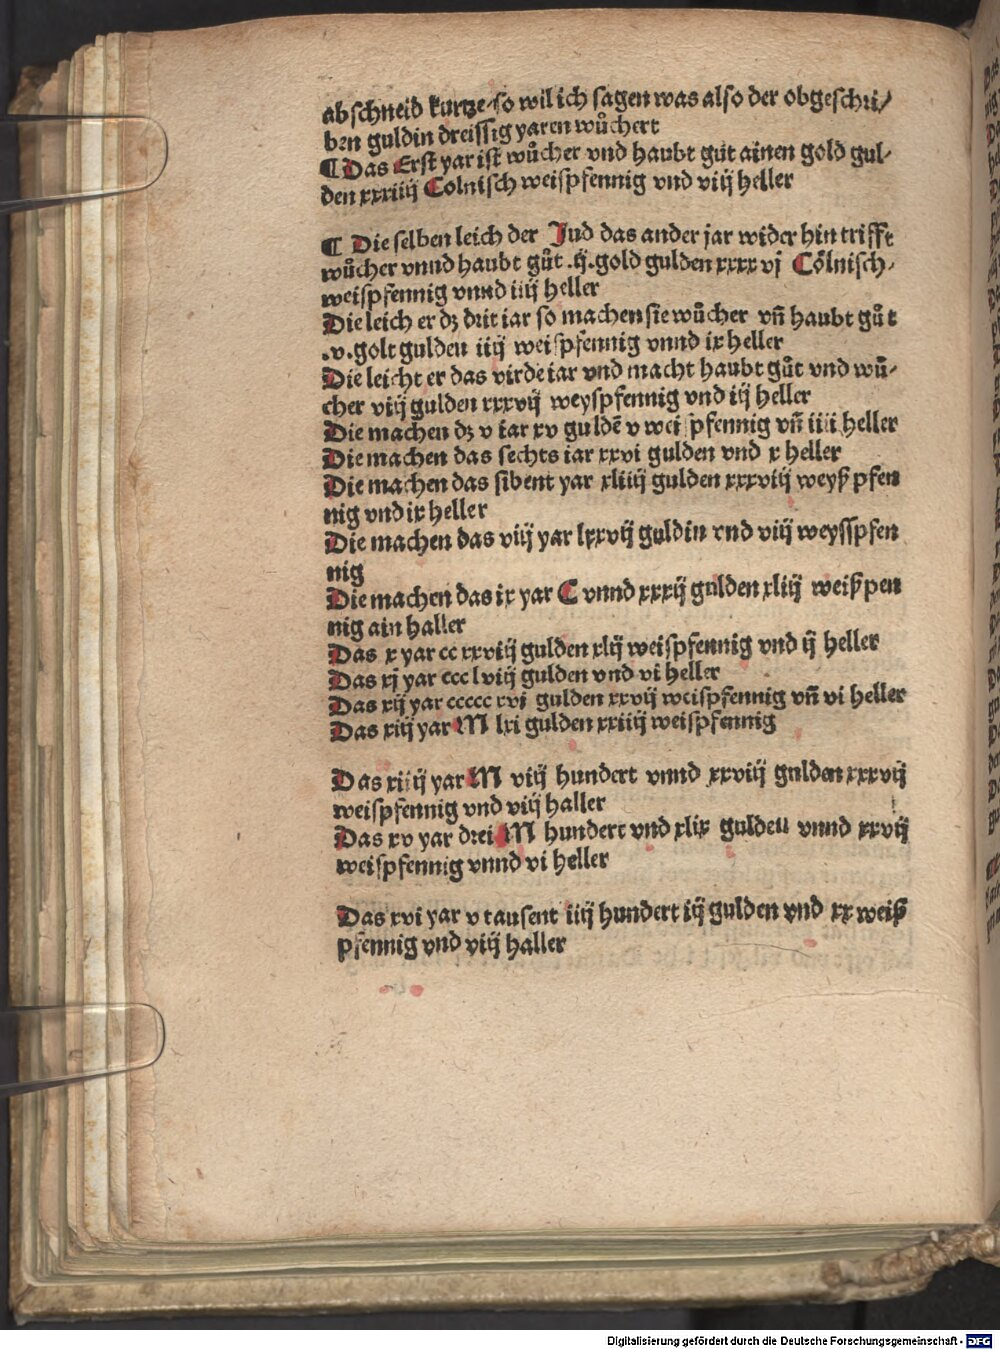 abschneid kurtze/so wil ich sagen was also der obgeschri/
ben guldin dreissig yaren wůchert
¶ Das Erst yar ist wůcher vnd haubt gůt ainen gold gul-
den xxxiiij Colnisch weispfennig vnd viij heller
¶ Die selben leich der Jud das ander jar wider hin trifft
wůcher vnnd haubt gůt .ij. gold gulden xxxx vj Cölnisch-
weispfennig vnnd iiij heller
Die leich er dꝫ drit iar so machen sie wůcher vn̄ haubt gůt
.v. golt gulden iiij weispfennig vnnd ix heller
Die leicht er das virde iar vnd macht haubt gůt vnd wů-
cher viij gulden xxxvij weyspfennig vnd iij heller
Die machen dꝫ v iar xv guldē v weispfennig vn̄ iiii heller
Die machen das sechts iar xxvi gulden vnd x heller
Die machen das sibent yar xliiij gulden xxxviij weyß pfen
nig vnd ix heller
Die machen das viij yar lxxvij guldin vnd viij weysspfen
nig
Die machen das ix yar C vnnd xxxij gulden xliij weißpen
nig ain haller
Das x yar cc xxviij gulden xlij weispfennig vnd ij heller
Das xj yar ccc lviij gulden vnd vi heller
Das xij yar ccccc xvi gulden xxvij weispfennig vn̄ vi heller
Das xiij yar M lxi gulden xxiiij weispfennig
Das xiiij yar M viij hundert vnnd xxviij gulden xxxvij
weispfennig vnd viij haller
Das xv yar drei M hundert vnd xlix gulden vnnd xxvij
weispfennig vnnd vi heller
Das xvi yar v tausent iiij hundert iij gulden vnd xx weiß
pfennig vnd viij haller
Digitalisierung gefördert durch die Deutsche Forschungsgemeinschaft - DFG